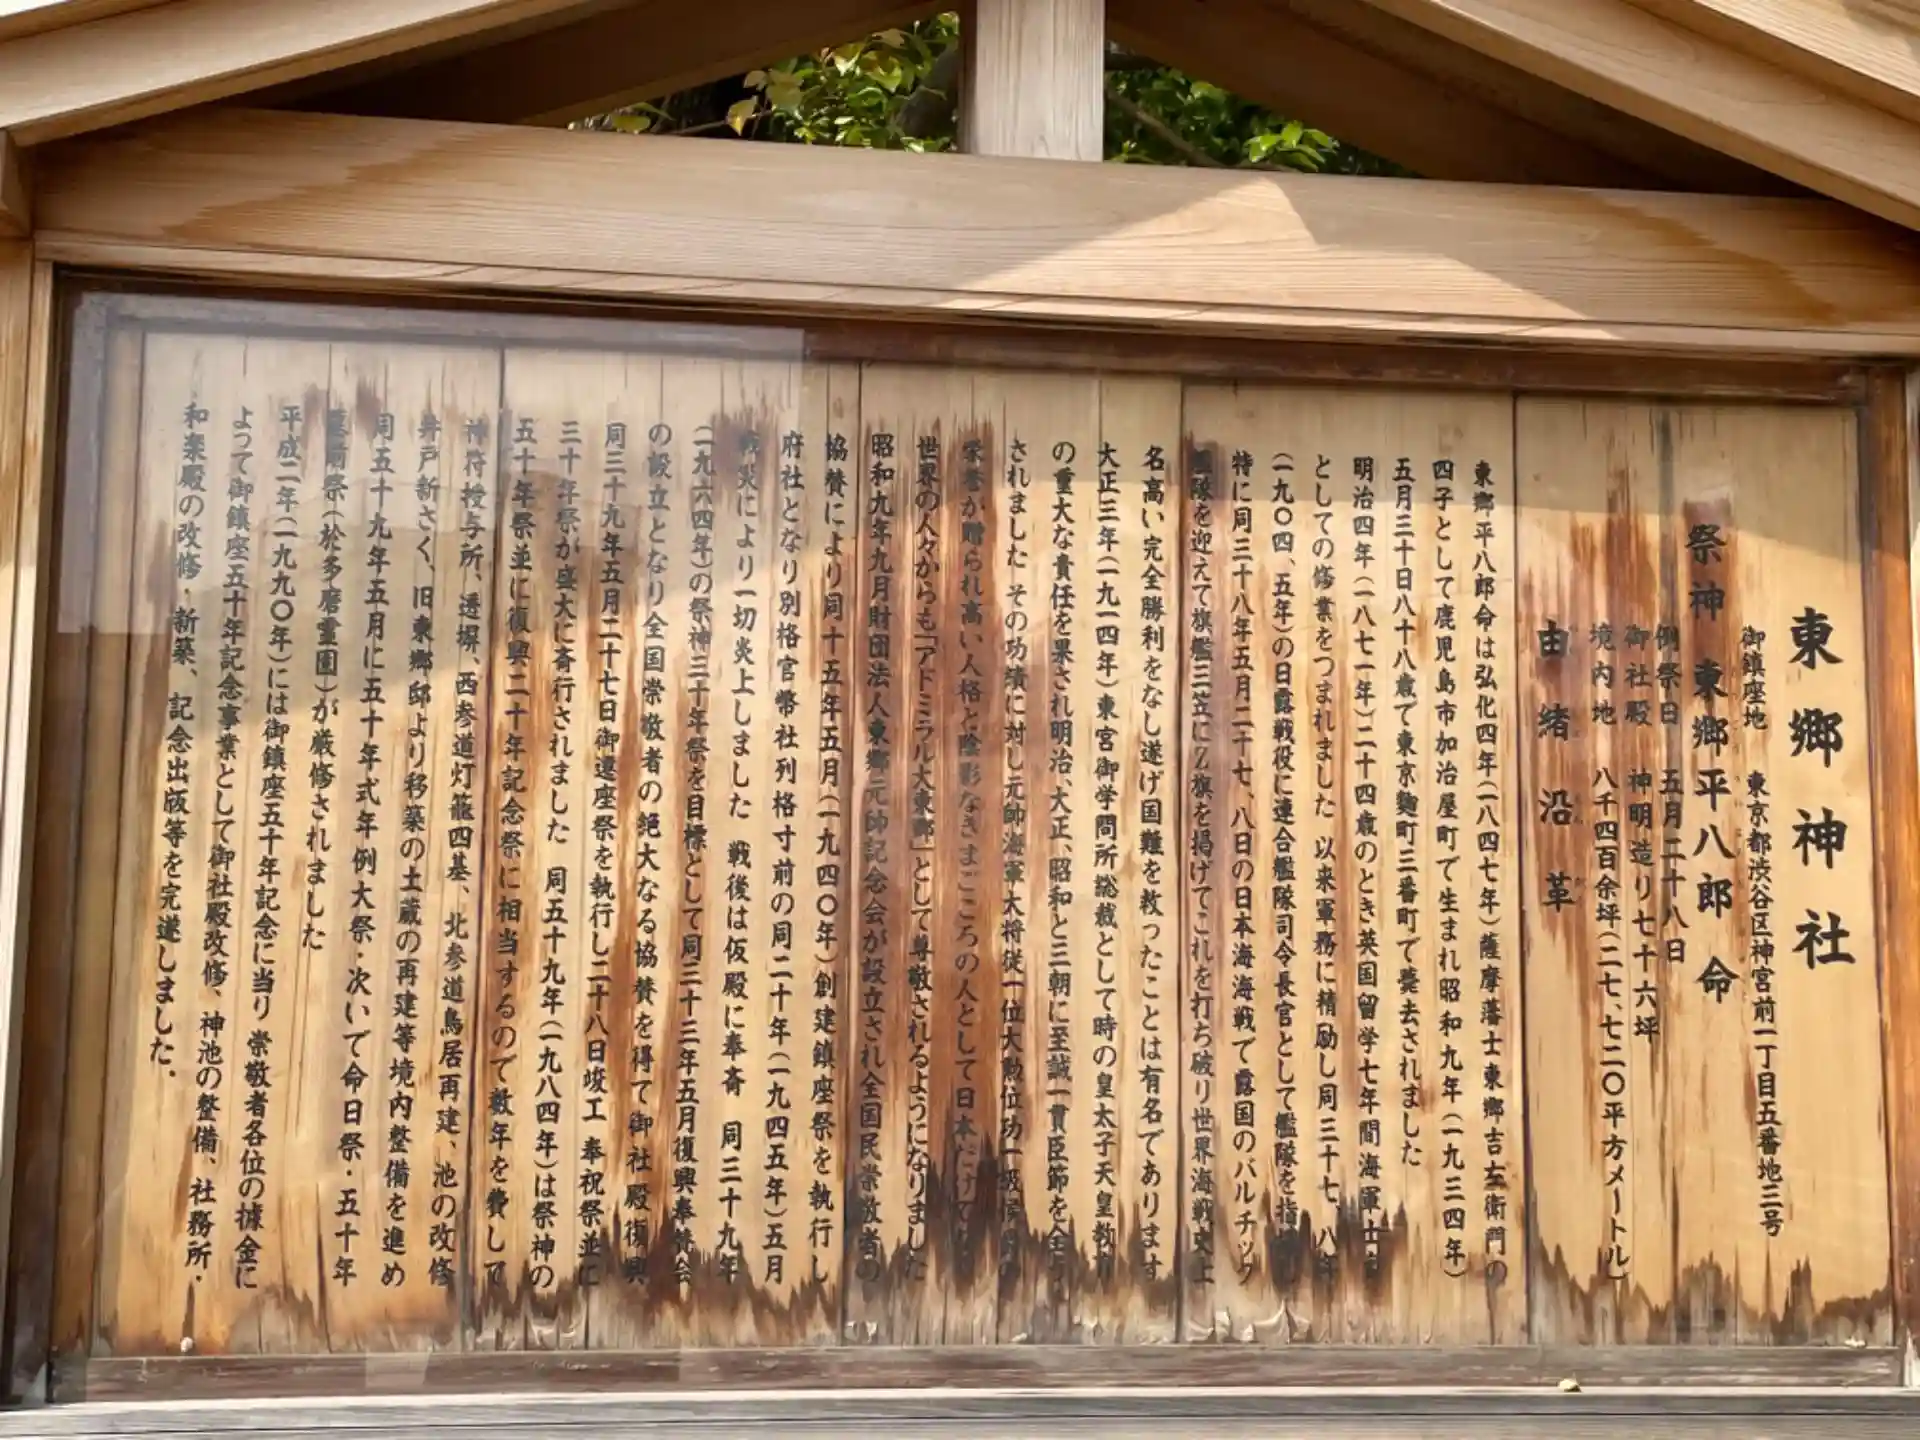 東郷神社
御鎮座地 東京都渋谷区神宮前一丁目五番地三号
祭神 東郷平八郎命
例祭日 五月二十八日
御社殿 神明造り七十六坪
境内地 八千四百余坪(二七、七二〇平方メートル)
由緒沿革
東郷平八郎命は弘化四年(一八四七年)薩摩藩士東郷吉左衛門の
四子として鹿児島市加治屋町で生まれ昭和九年(一九三四年)
五月三十日八十八歳で東京麹町三番町で薨去されました
明治四年(一八七一年)二十四歳のとき英国留学七年間海軍士官
としての修業をつまれました 以来軍務に精励し同三十七、八年
(一九〇四、五年)の日露戦役に連合艦隊司令長官として艦隊を指揮し
特に同三十八年五月二十七、八日の日本海海戦で露国のバルチック
艦隊を迎えて旗艦三笠にZ旗を掲げてこれを打ち破り世界海戦史上
名高い完全勝利をなし遂げ国難を救ったことは有名であります
大正三年(一九一四年)東宮御学問所総裁として時の皇太子天皇教育
の重大な責任を果され明治、大正、昭和と三朝に至誠一貫臣節を全う
されました その功績に対し元帥海軍大将従一位大勲位功一級侯爵の
栄誉が贈られ高い人格と陰影なきまごころの人として日本だけでなく
世界の人々からも「アドミラル大東郷」として尊敬されるようになりました
昭和九年九月財団法人東郷元帥記念会が設立され全国民崇敬者の
協賛により同十五年五月(一九四〇年)創建鎮座祭を執行し
府社となり別格官幣社列格寸前の同二十年(一九四五年)五月
戦災により一切炎上しました 戦後は仮殿に奉斎 同三十九年
(一九六四年)の祭神三十年祭を目標として同三十三年五月復興奉賛会
の設立となり全国崇敬者の絶大なる協賛を得て御社殿復興
同三十九年五月二十七日御遷座祭を執行し二十八日竣工 奉祝祭並に
三十年祭が盛大に斎行されました 同五十九年(一九八四年)は祭神の
五十年祭並に復興二十年記念祭に相当するので数年を費して
神符授与所、透塀、西参道灯籠四基、北参道鳥居再建、池の改修
井戸新さく、旧東郷邸より移築の土蔵の再建等境内整備を進め
同五十九年五月に五十年式年例大祭・次いで命日祭・五十年
墓前祭(於多磨霊園)が厳修されました
平成二年(一九九〇年)には御鎮座五十年記念に当り 崇敬者各位の據金に
よって御鎮座五十年記念事業として御社殿改修、神池の整備、社務所・
和楽殿の改修・新築、記念出版等を完遂しました.